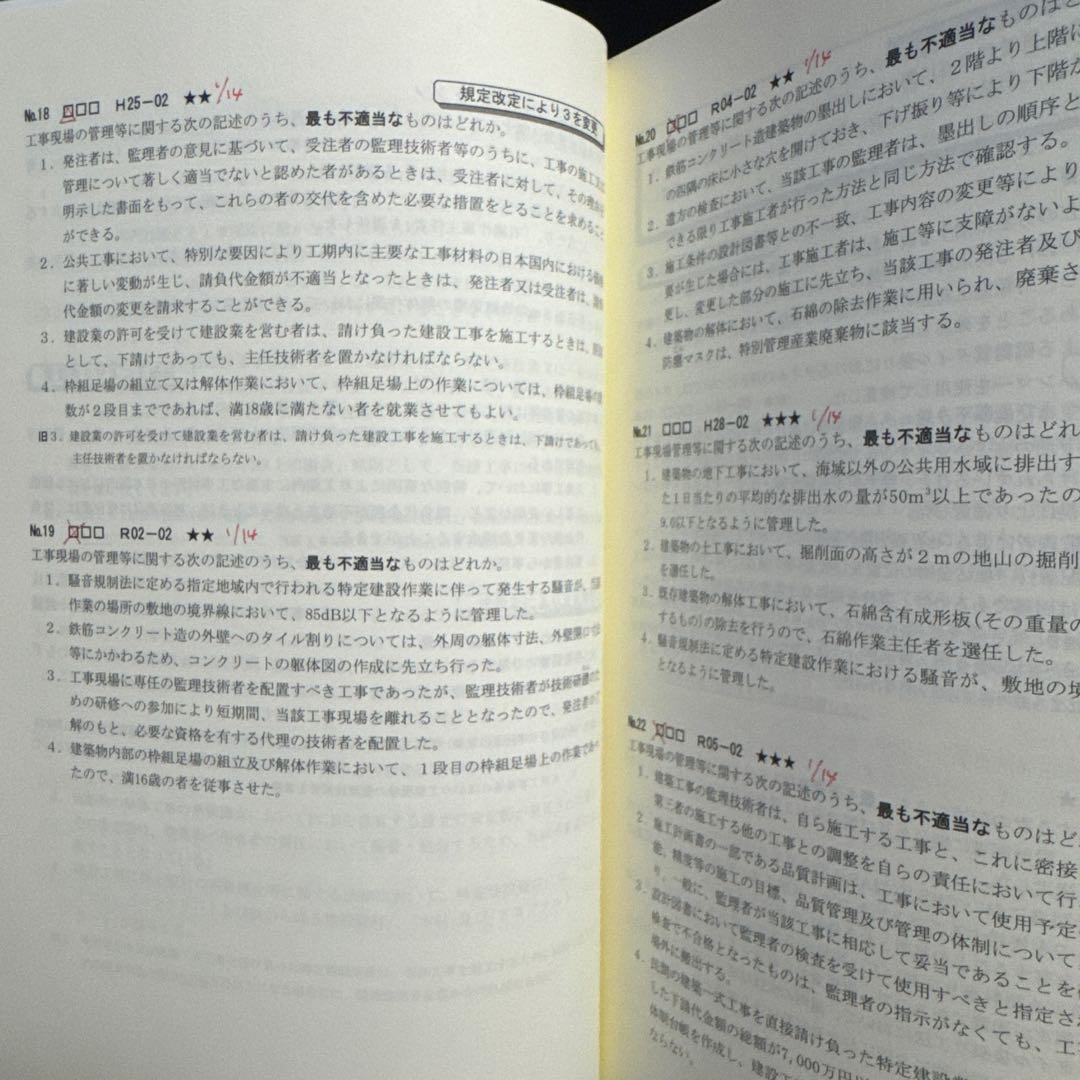 No.18 □□□ H25-02 ★★ 1/14
規定改定により3を変更
工事現場の管理等に関する次の記述のうち、最も不適当なものはどれか。
1. 発注者は、監理者の意見に基づいて、受注者の監理技術者等のうちに、工事の施工
管理について著しく適当でないと認めた者があるときは、受注者に対して、その理由
明示した書面をもって、これらの者の交代を含めた必要な措置をとることを求めること
ができる。
2. 公共工事において、特別な要因により工期内に主要な工事材料の日本国内における
に著しい変動が生じ、請負代金額が不適当となったときは、発注者又は受注者は、
代金額の変更を請求することができる。
3. 建設業の許可を受けて建設業を営む者は、請け負った建設工事を施工するときは、
として、下請けであっても、主任技術者を置かなければならない。
4. 枠組足場の組立て又は解体作業において、枠組足場上の作業については、枠組足場の
数が2段目までであれば、満18歳に満たない者を就業させてもよい。
旧3. 建設業の許可を受けて建設業を営む者は、請け負った建設工事を施工するときは、下請けであっても、
主任技術者を置かなければならない。
No.19 □□□ R02-02 ★★ 1/14
工事現場の管理等に関する次の記述のうち、最も不適当なものはどれか。
1. 騒音規制法に定める指定地域内で行われる特定建設作業に伴って発生する騒音が、
作業の場所の敷地の境界線において、85dB以下となるように管理した。
2. 鉄筋コンクリート造の外壁へのタイル割りについては、外周の躯体寸法、外壁開口寸
等にかかわるため、コンクリートの躯体図の作成に先立ち行った。
3. 工事現場に専任の監理技術者を配置すべき工事であったが、監理技術者が技術研鑽のた
めの研修への参加により短期間、当該工事現場を離れることとなったので、発注者の
解のもと、必要な資格を有する代理の技術者を配置した。
4. 建築物内部の枠組足場の組立及び解体作業において、1段目の枠組足場上の作業であっ
たので、満16歳の者を従事させた。
No.20 □□□ R04-02 ★★ 1/14
工事現場の管理等に関する次の記述のうち、最も不適当なものはど
1. 鉄筋コンクリート造建築物の墨出しにおいて、2階より上階に
の四隅の床に小さな穴を開けておき、下げ振り等により下階か
2. 遣方の検査において、当該工事の監理者は、墨出しの順序と
できる限り工事施工者が行った方法と同じ方法で確認する。
3. 施工条件の設計図書等との不一致、工事内容の変更等により
要が生じた場合には、工事施工者は、施工等に支障がないよ
更し、変更した部分の施工に先立ち、当該工事の発注者及び
4. 建築物の解体において、石綿の除去作業に用いられ、廃棄さ
防塵マスクは、特別管理産業廃棄物に該当する。
No.21 □□□ H28-02 ★★★ 1/14
工事現場管理等に関する次の記述のうち、最も不適当なものはどれ
1. 建築物の地下工事において、海域以外の公共用水域に排出す
た1日当たりの平均的な排出水の量が50m³以上であったの
9.0以下となるように管理した。
2. 建築物の土工事において、掘削面の高さが2mの地山の掘削
を選任した。
3. 既存建築物の解体工事において、石綿含有成形板(その重量の
するもの)の除去を行うので、石綿作業主任者を選任した。
4. 騒音規制法に定める特定建設作業における騒音が、敷地の境
となるように管理した。
No.22 □□□ R05-02 ★★★ 1/14
工事現場の管理等に関する次の記述のうち、最も不適当なものはど
1. 建築工事の監理技術者は、自ら施工する工事と、これに密接
第三者の施工する他の工事との調整を自らの責任において行
2. 施工計画書の一部である品質計画は、工事において使用予定
能、精度等の施工の目標、品質管理及び管理の体制について
り、一般に、監理者が当該工事に相応して妥当であることを
3. 設計図書において監理者の検査を受けて使用すべきと指定さ
検査で不合格となったものは、監理者の指示がなくても、工
場外に搬出する。
4. 民間の建築一式工事を直接請け負った特定建設
した下請代金額の総額が7,000万円
体制台帳を作成し、建設工
ならない。